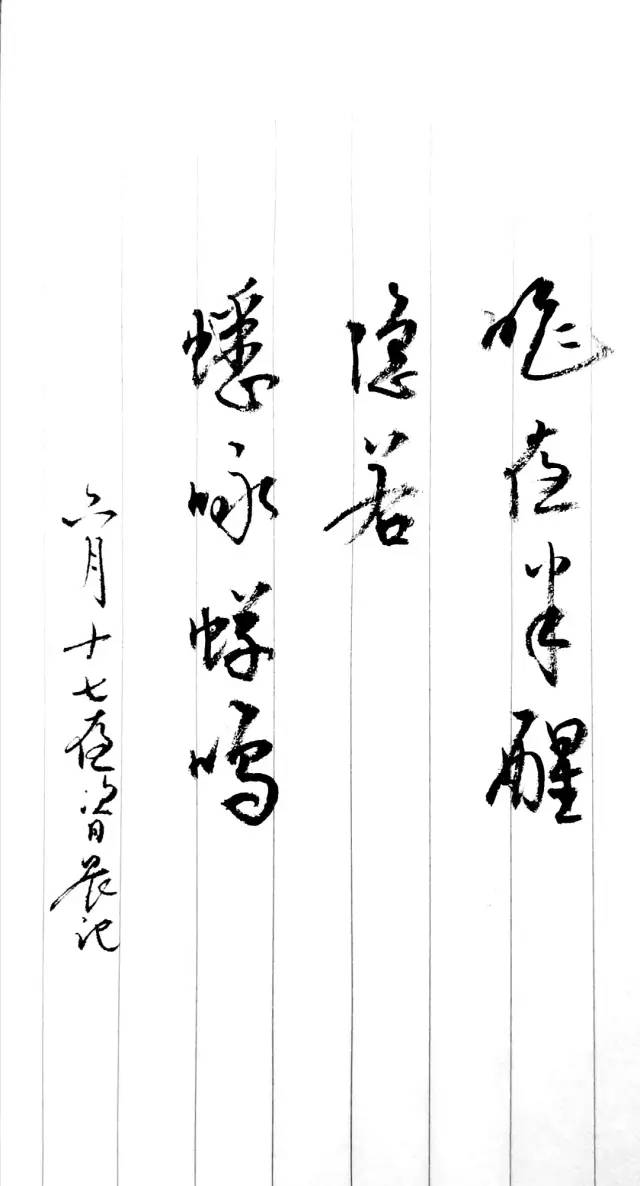 昨夜半醒
隐若
蟋咏蝉鸣
六月十七夜晨记